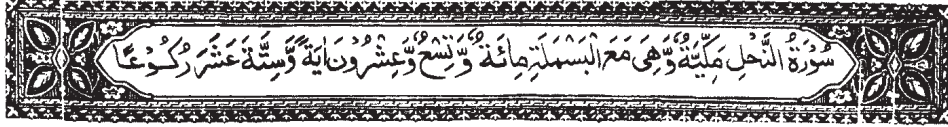 سُوْرَةُ النَّحْلِ مَكِّيَّةٌ وَّهِیَ مَعَ الْبَسْمَلَةِ مِائَةٌ وَّتِسْعٌ وَّعِشْرُوْنَ اٰيَةً وَّسِتَّةَ عَشَرَ رُكُوْعًا